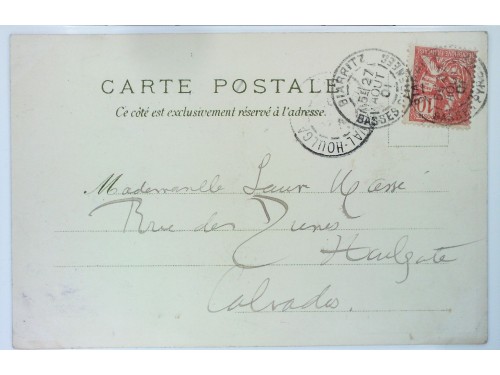 CARTE POSTALE
Ce côté est exclusivement réservé à l'adresse.
BIARRITZ
27
AOUT
01
BASSES
HOULGA
10
Mademoiselle Laure Massé
Rue des Dunes
Houlgate
Calvados.